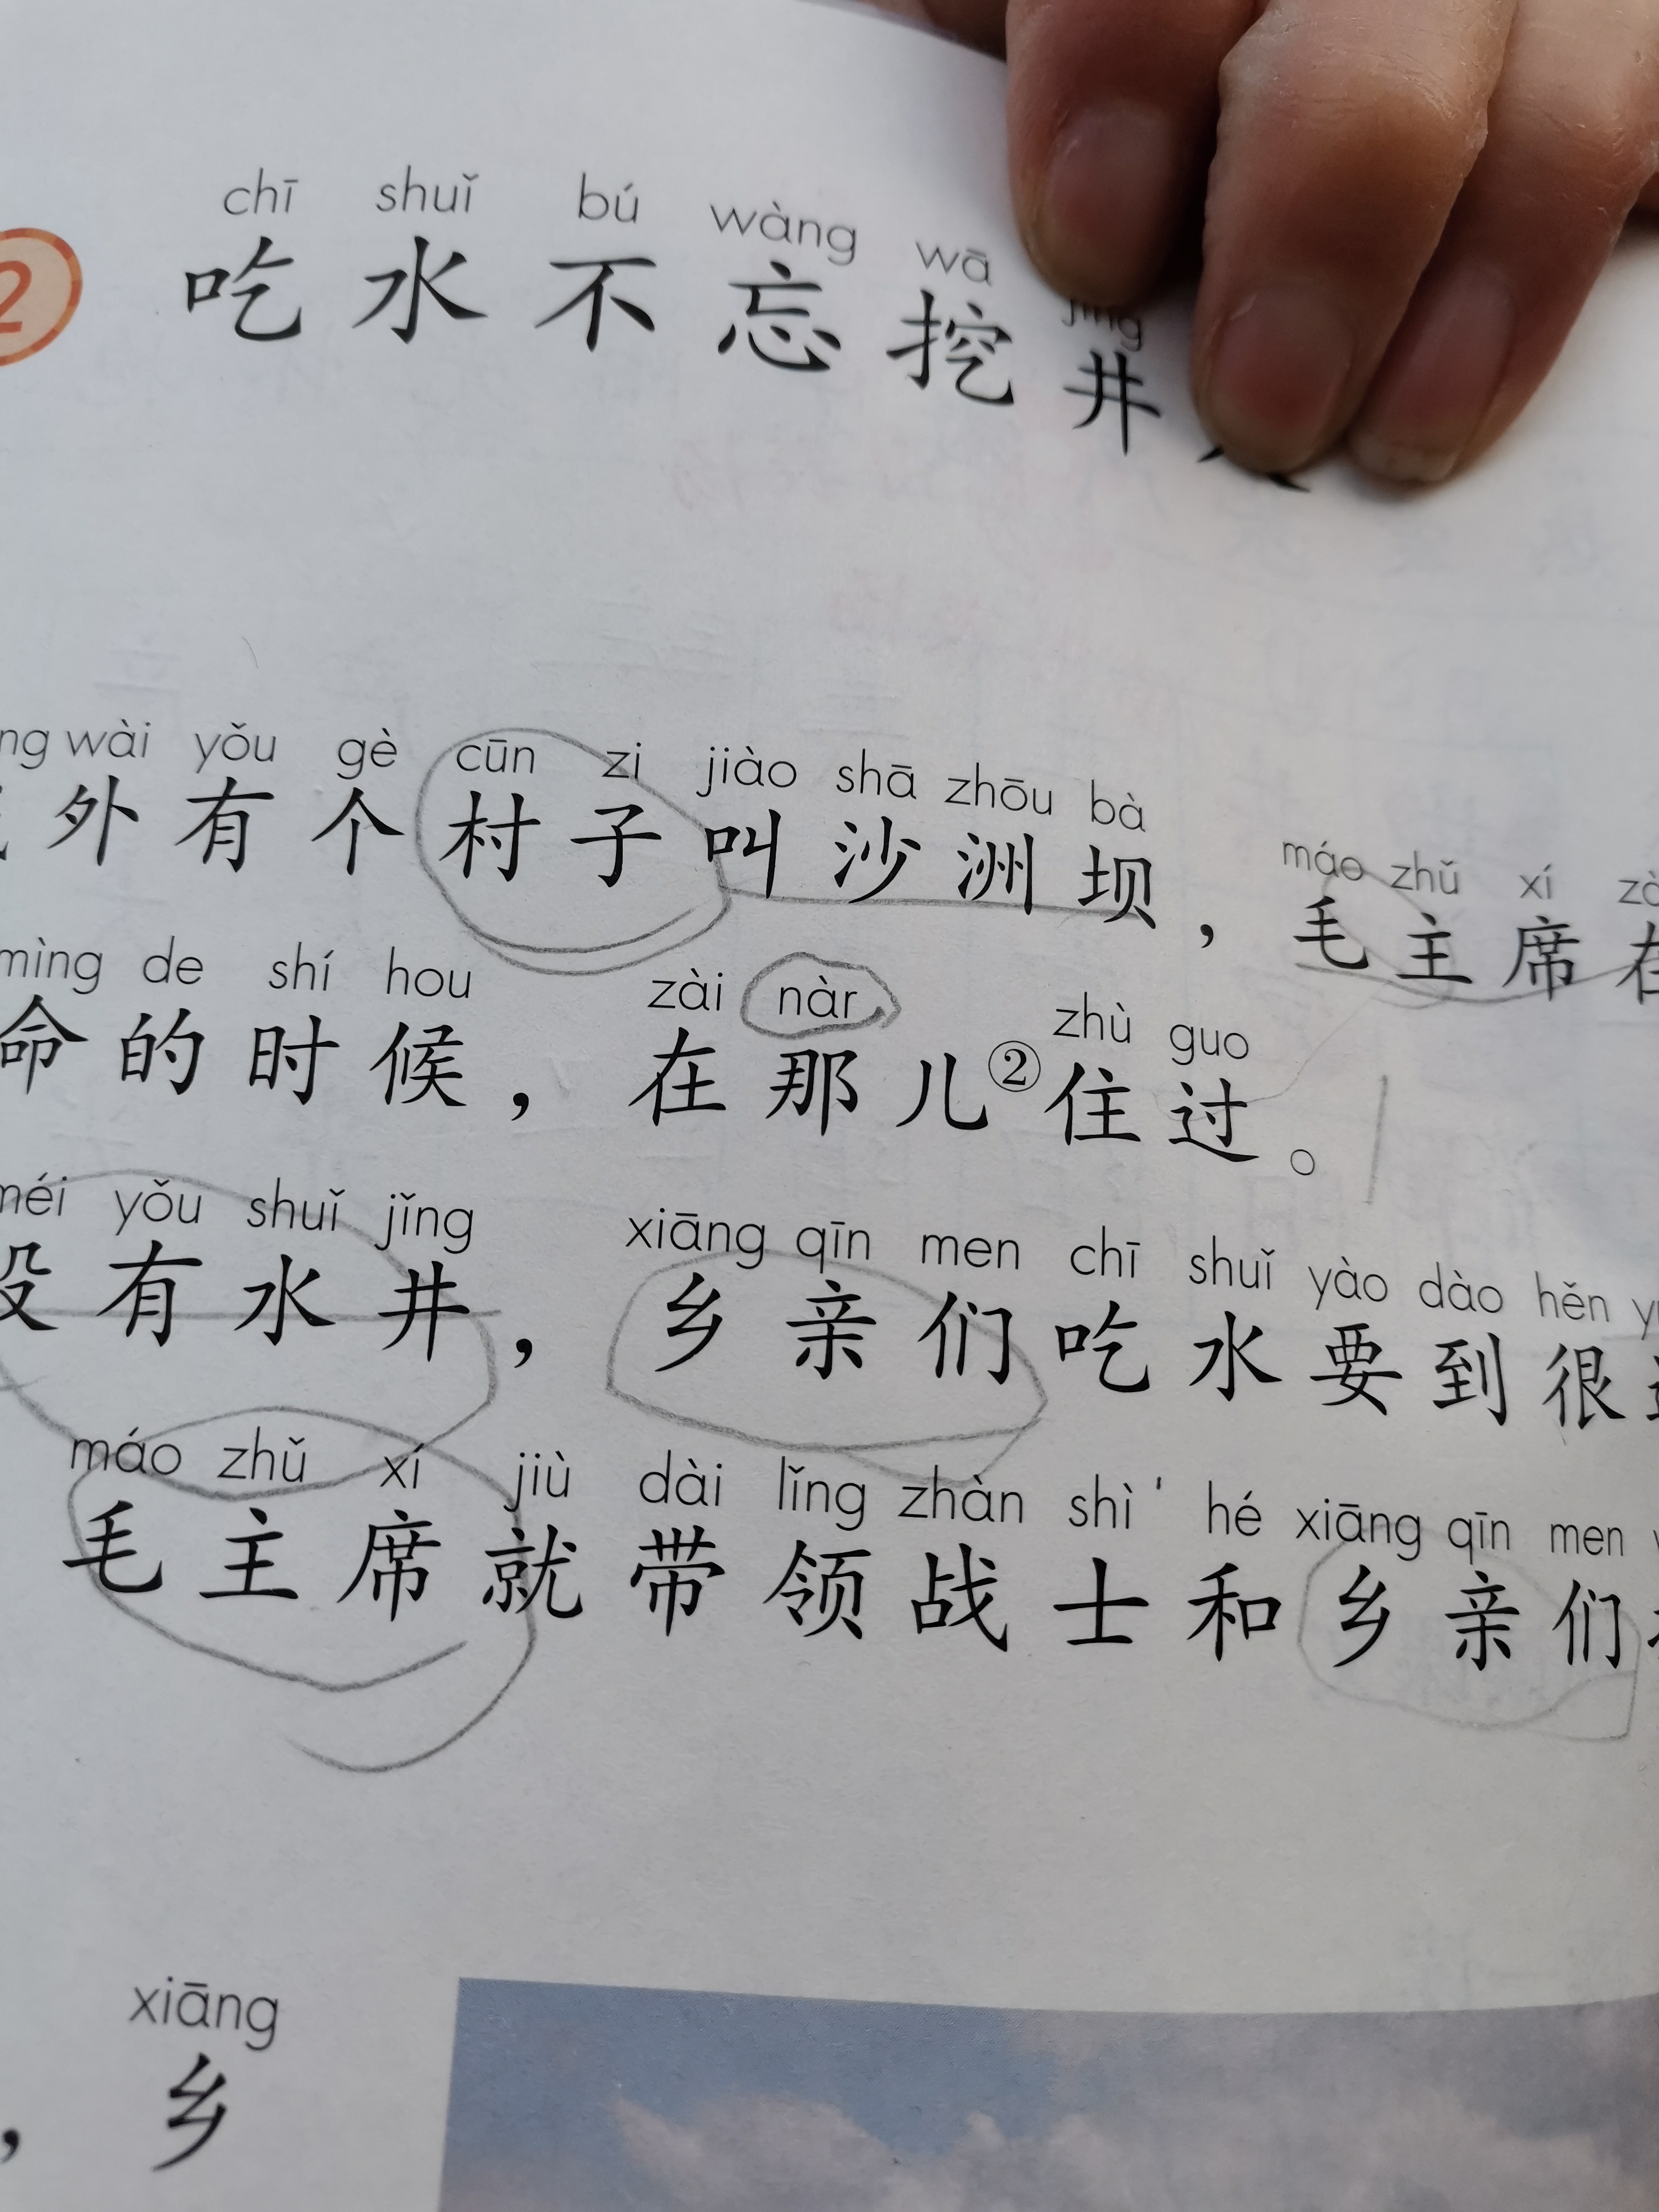 chī shuǐ bú wàng wā jǐng
2 吃水不忘挖井
wài yǒu gè cūn zi jiào shā zhōu bà máo zhǔ xí
外有个村子叫沙洲坝，毛主席在
mìng de shí hou zài nàr zhù guo
命的时候，在那儿②住过。
méi yǒu shuǐ jǐng xiāng qīn men chī shuǐ yào dào hěn
没有水井，乡亲们吃水要到很
máo zhǔ xí jiù dài lǐng zhàn shì ' hé xiāng qīn men
毛主席就带领战士和乡亲们
xiāng
，乡